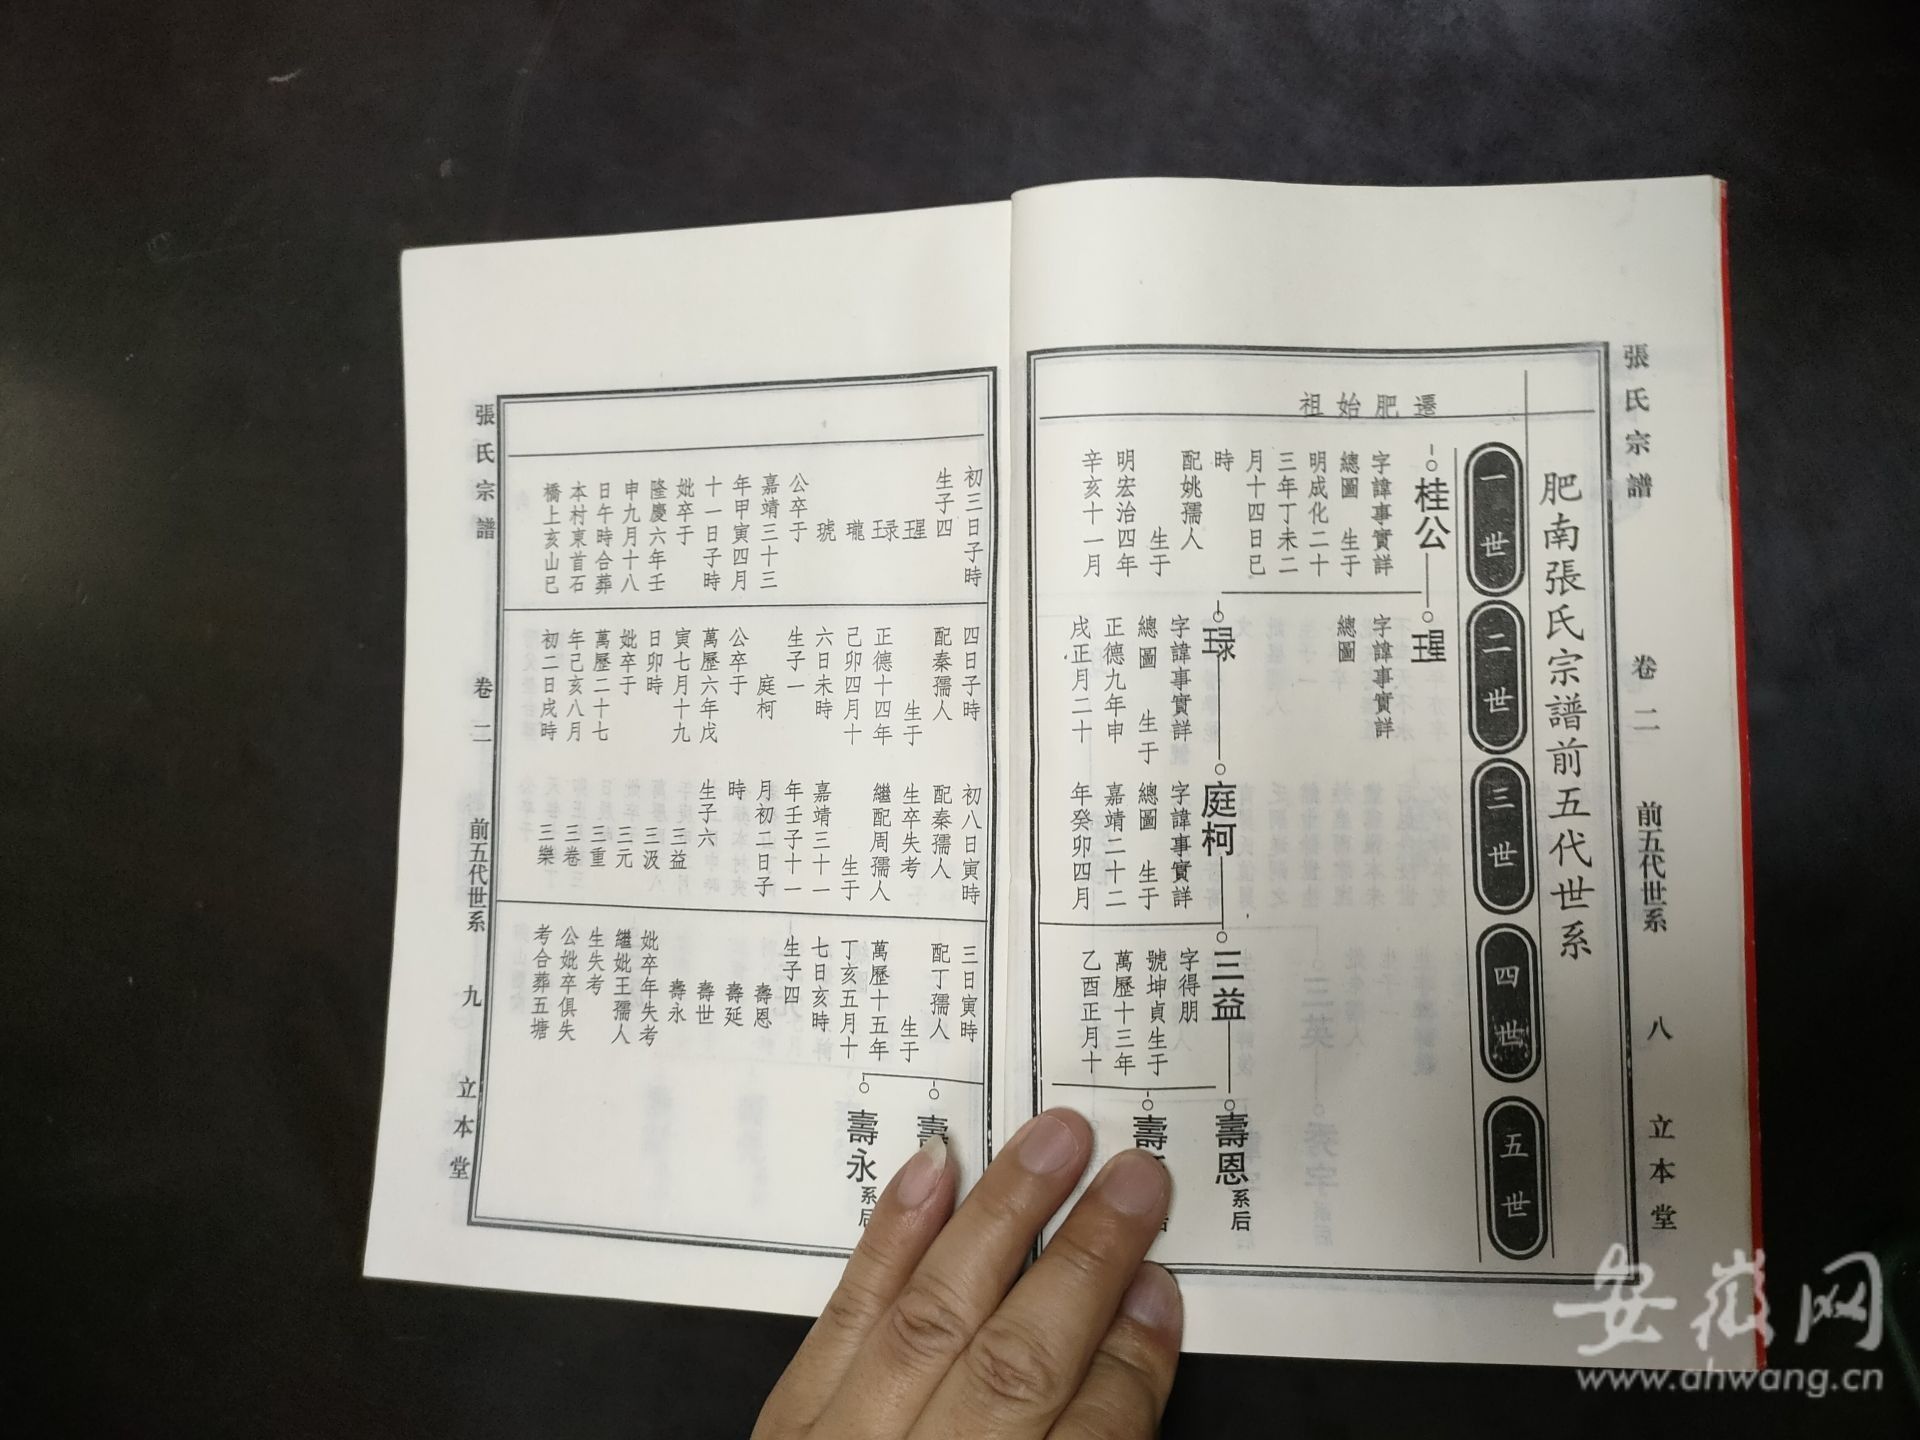 張氏宗譜 卷二 前五代世系 八 立本堂
肥南張氏宗譜前五代世系
一世
二世
三世
四世
五世
遷肥始祖
桂公
字諱事實詳
總圖 生于
明成化二十
三年丁未二
月十四日巳
時
配姚孺人
生于
明宏治四年
辛亥十一月
瑆
字諱事實詳
總圖
琭
字諱事實詳
總圖 生于
正德九年申
戌正月二十
庭柯
字諱事實詳
總圖 生于
嘉靖二十二
年癸卯四月
三益
字得朋
號坤貞生于
萬歷十三年
乙酉正月十
壽恩系后
壽
張氏宗譜 卷二 前五代世系 九 立本堂
初三日子時
生子四
瑆
琭
瓏
琥
公卒于
嘉靖三十三
年甲寅四月
十一日子時
妣卒于
隆慶六年壬
申九月十八
日午時合葬
本村東首石
橋上亥山巳
四日子時
配秦孺人
生于
正德十四年
己卯四月十
六日未時
生子一
庭柯
公卒于
萬歷六年戊
寅七月十九
日卯時
妣卒于
萬歷二十七
年己亥八月
初二日戌時
初八日寅時
配秦孺人
生卒失考
繼配周孺人
生于
嘉靖三十一
年壬子十一
月初二日子
時
生子六
三益
三汲
三元
三重
三卷
三樂
三日寅時
配丁孺人
生于
萬歷十五年
丁亥五月十
七日亥時
生子四
壽恩
壽延
壽世
壽永
妣卒年失考
繼妣王孺人
生失考
公妣卒俱失
考合葬五塘
壽
壽永系后
安徽网
www.ahwang.cn